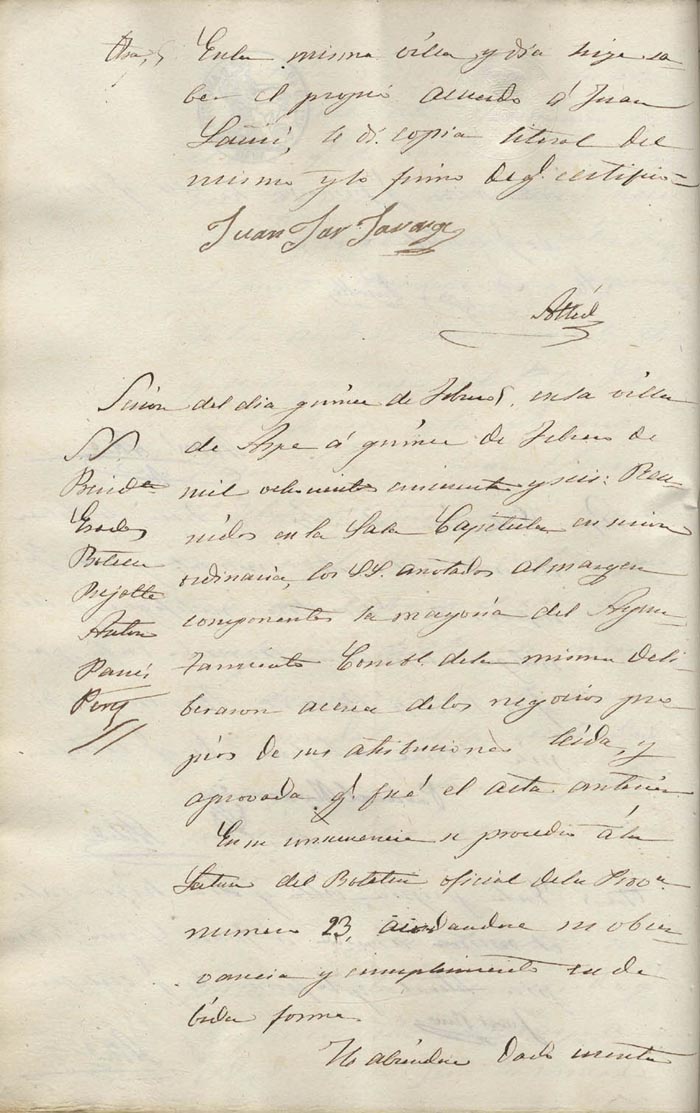 Otra, En la misma villa y dia hize sa-
ber el propio acuerdo á Juan
le di copia literal del
mismo y lo firmo de q.e certifico=
Juan
Sesion del dia quince de Febrero, en la villa
SS. de Aspe á quince de Febrero de
Presid.te mil ochocientos cincuenta y seis: Reu-
nidos en la Sala Capitular en sesion
Botella ordinaria, los SS. anotados al margen
Pujalte componentes la mayoria del Ayun-
Anton tamiento Constl. de la misma deli-
beraron acerca de los negocios pro-
Perez pios de sus atribuciones leida, y
aprovada q.e fué el acta anterior.
En su consecuencia se procedio á la
Letura del Boletin oficial de la Prov.a
numero 23, acordandose su obser-
vancia y cumplimiento en de-
bida forma.
Habiendose dado cuenta